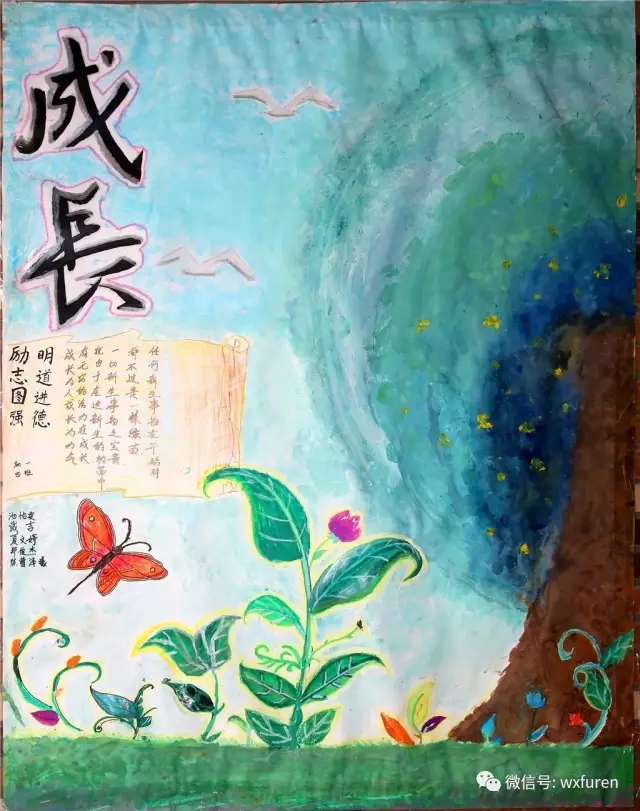 成長
任何新生事物在开始时
都不过是一株幼苗
一切新生事物之宝贵
就由于在这新生的幼苗中
有无穷的活力在成长
成长为人成长为力气
明道进德
励志图强
一班
微信号: wxfuren